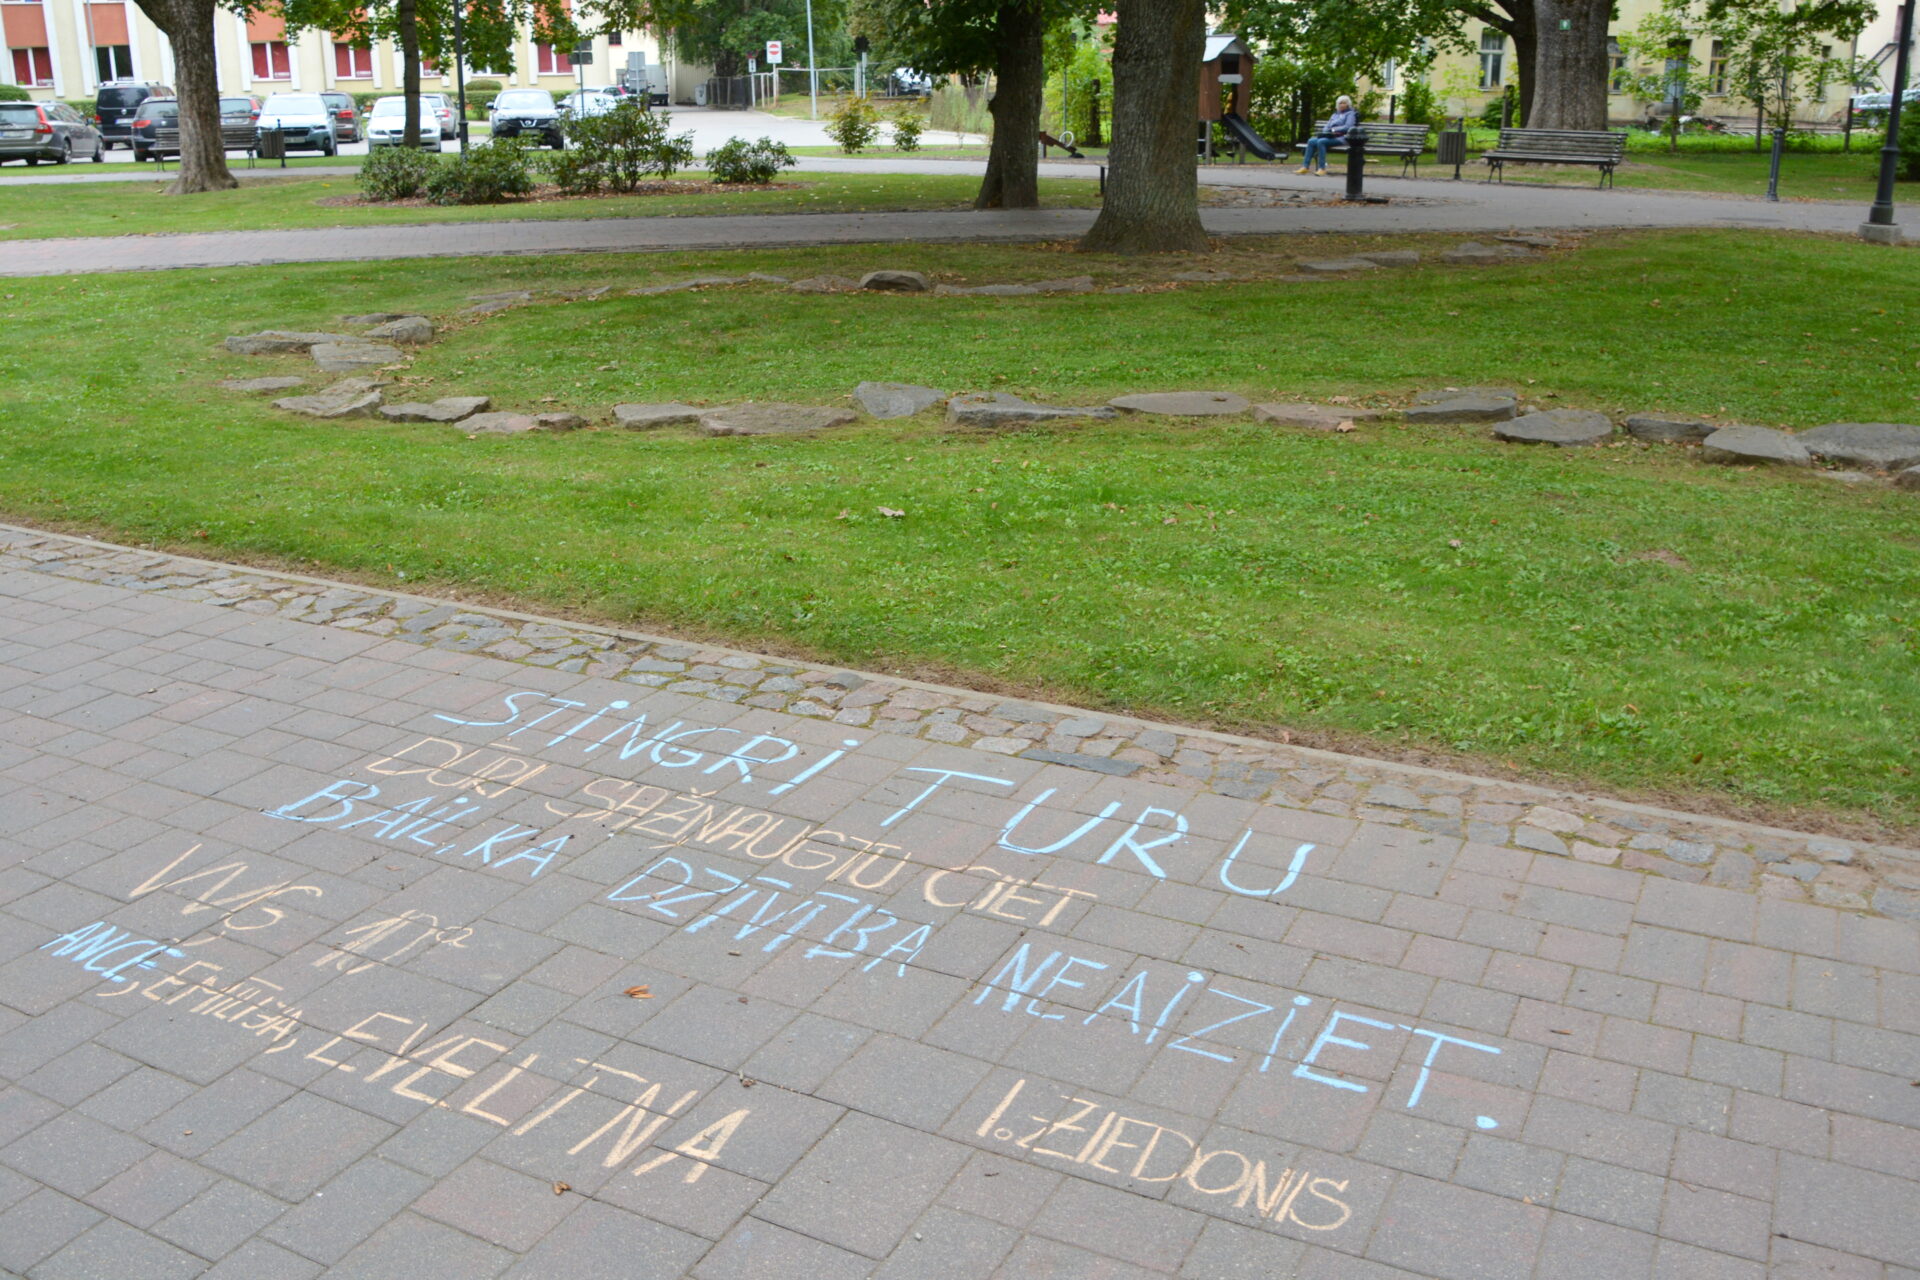 STINGRI TURU
DŪRI SAŽŅAUGTU CIET
BAIL, KA DZĪVĪBA NEAIZIET.
VVĢ 10ª
ANCE, EMĪLIJA, EVELĪNA
I. ZIEDONIS